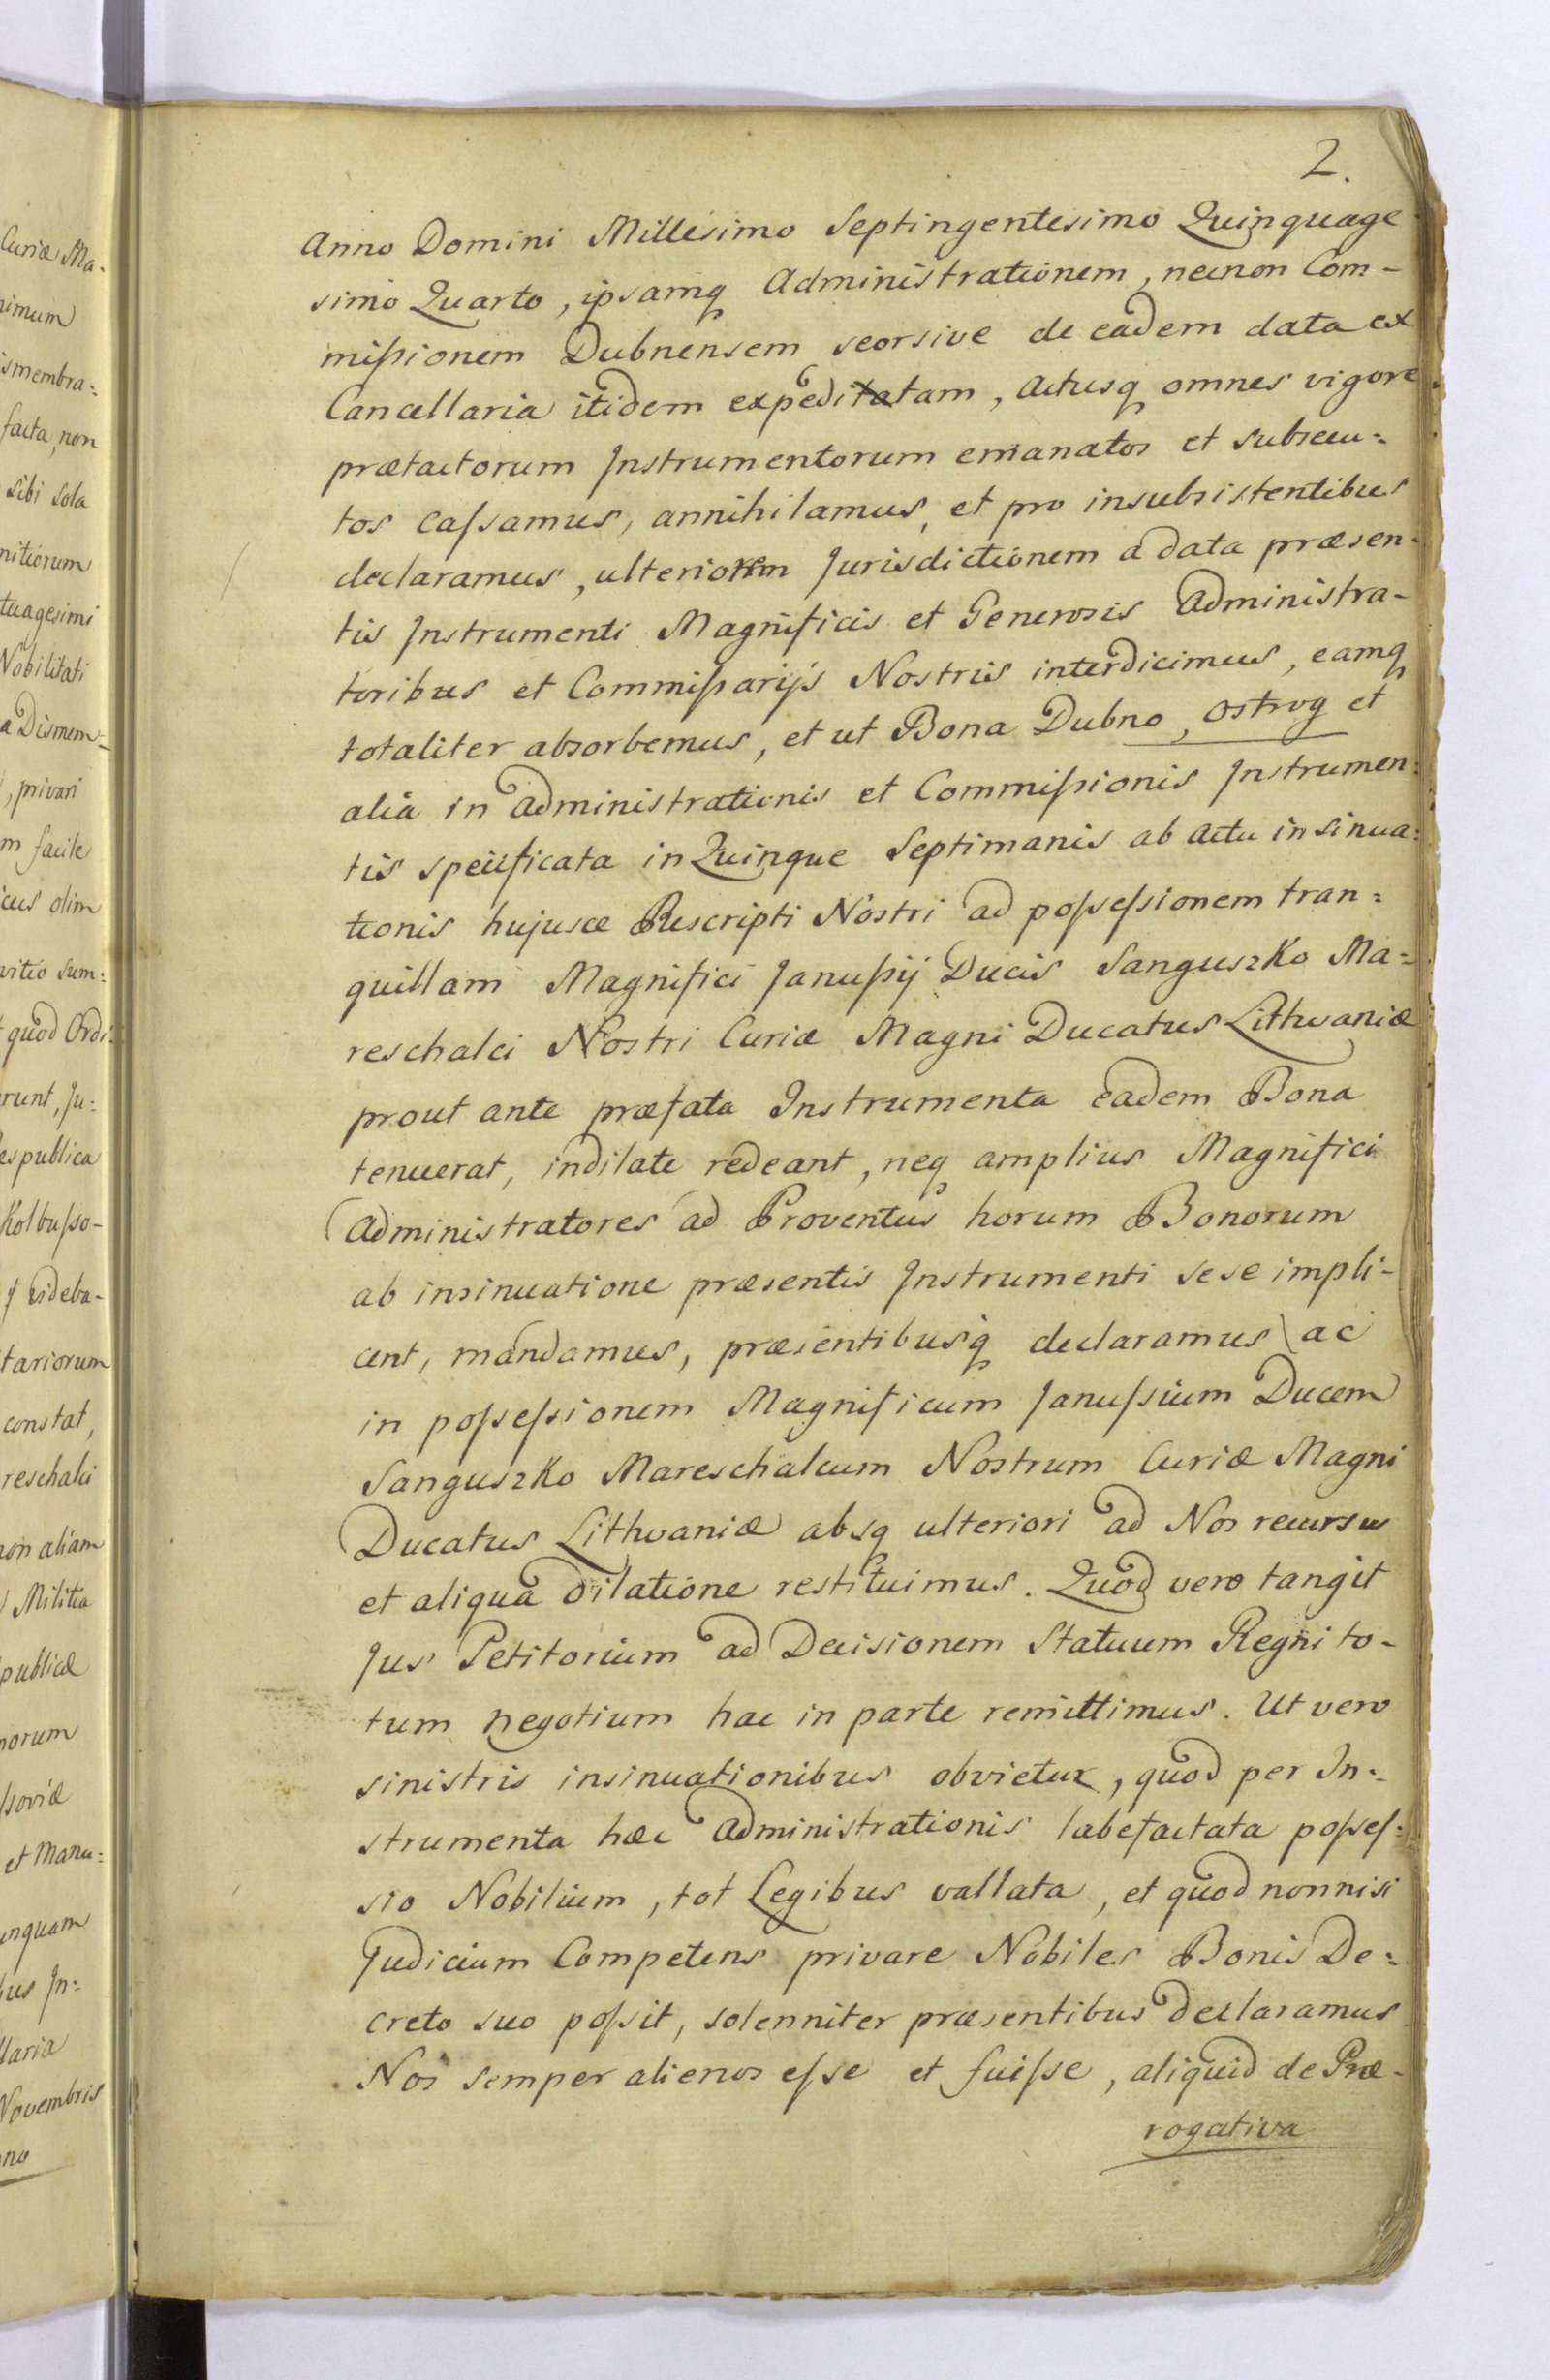 2.
Anno Domini Millesimo Septingentesimo Quinquage
simo Quarto, ipsamq Administrationem, necnon Com-
missionem Dubnensem seorsive de eadem data ex
Cancellaria itidem expeditatam, actusq omnes vigore
prætactorum Instrumentorum emanatos et subsecu=
tos cassamus, annihilamus, et pro insubsistentibus
declaramus, ulteriorem Jurisdictionem a data præsen-
tis Instrumenti Magnificis et Generosis Administra-
toribus et Commissarijs Nostris interdicimus, eamq
totaliter absorbemus, et ut Bona Dubno, Ostrog et
alia in Administrationis et Commissionis Instrumen=
tis specificata in Quinque Septimanis ab actu insinua=
tionis hujusce Rescripti Nostri ad possessionem tran=
quillam Magnifici Janussij Ducis Sanguszko Ma=
reschalci Nostri Curiæ Magni Ducatus Lithvaniæ
prout ante præfata Instrumenta eadem Bona
tenuerat, indilate redeant, neq amplius Magnifici
Administratores ad Proventus horum Bonorum
ab insinuatione præsentis Instrumenti sese impli-
cent, mandamus, præsentibusq declaramus ac
in possessionem Magnificum Janussium Ducem
Sanguszko Mareschalcum Nostrum Curiæ Magni
Ducatus Lithvaniæ absq ulteriori ad Nos recursu
et aliqua dilatione restituimus. Quod vero tangit
Jus Petitorium ad Decisionem Statuum Regni to-
tum negotium hac in parte remittimus. Ut vero
sinistris insinuationibus obvietur, quod per In=
strumenta hæc Administrationis labefactata posses=
sio Nobilium, tot Legibus vallata, et quod nonnisi
Judicium Competens privare Nobiles Bonis De=
creto suo possit, solenniter præsentibus declaramus
Nos semper alienos esse et fuisse, aliquid de Præ-
rogativa
Curiæ Ma-
facta, non
sibi sola
Nobilitati
a Dismem=
, privari
m facile
olim
quod Ordi=
Kolbusso-
constat,
non aliam
Militia
et Manu=
Novembris